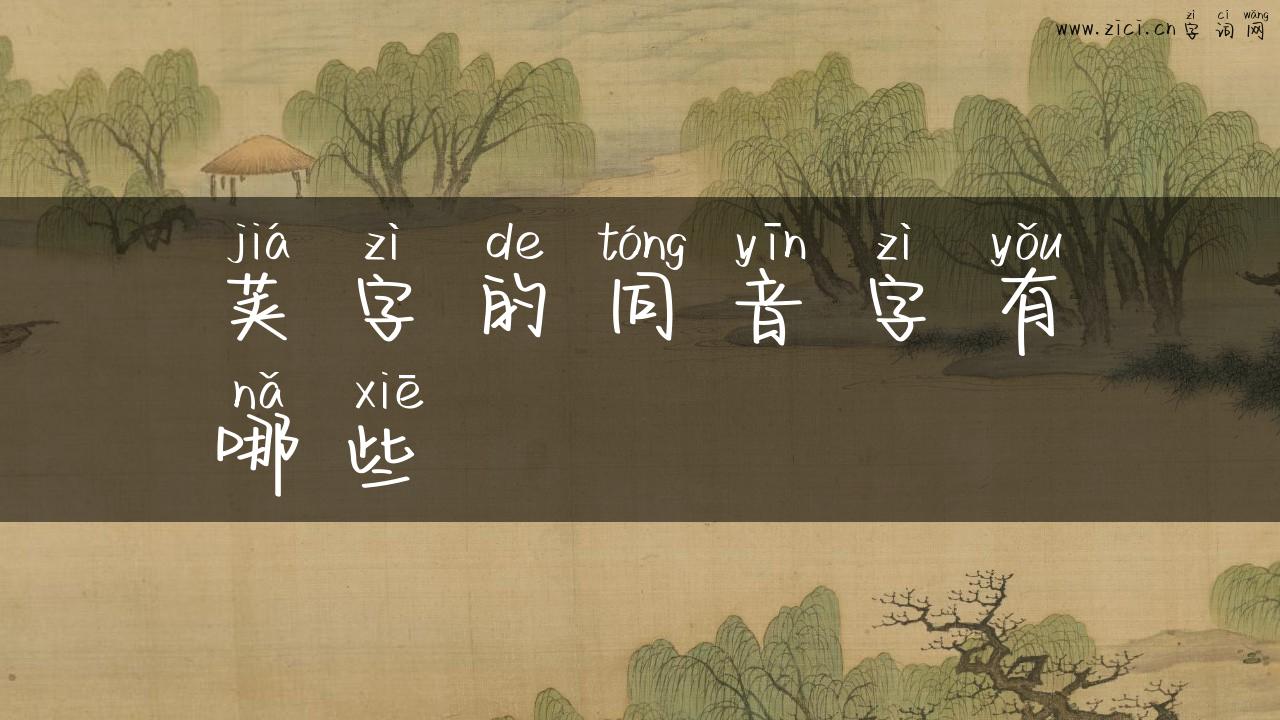 zì cí wǎng
www.zici.cn 字词网
jiá zì de tóng yīn zì yǒu
荚字的同音字有
nǎ xiē
哪些